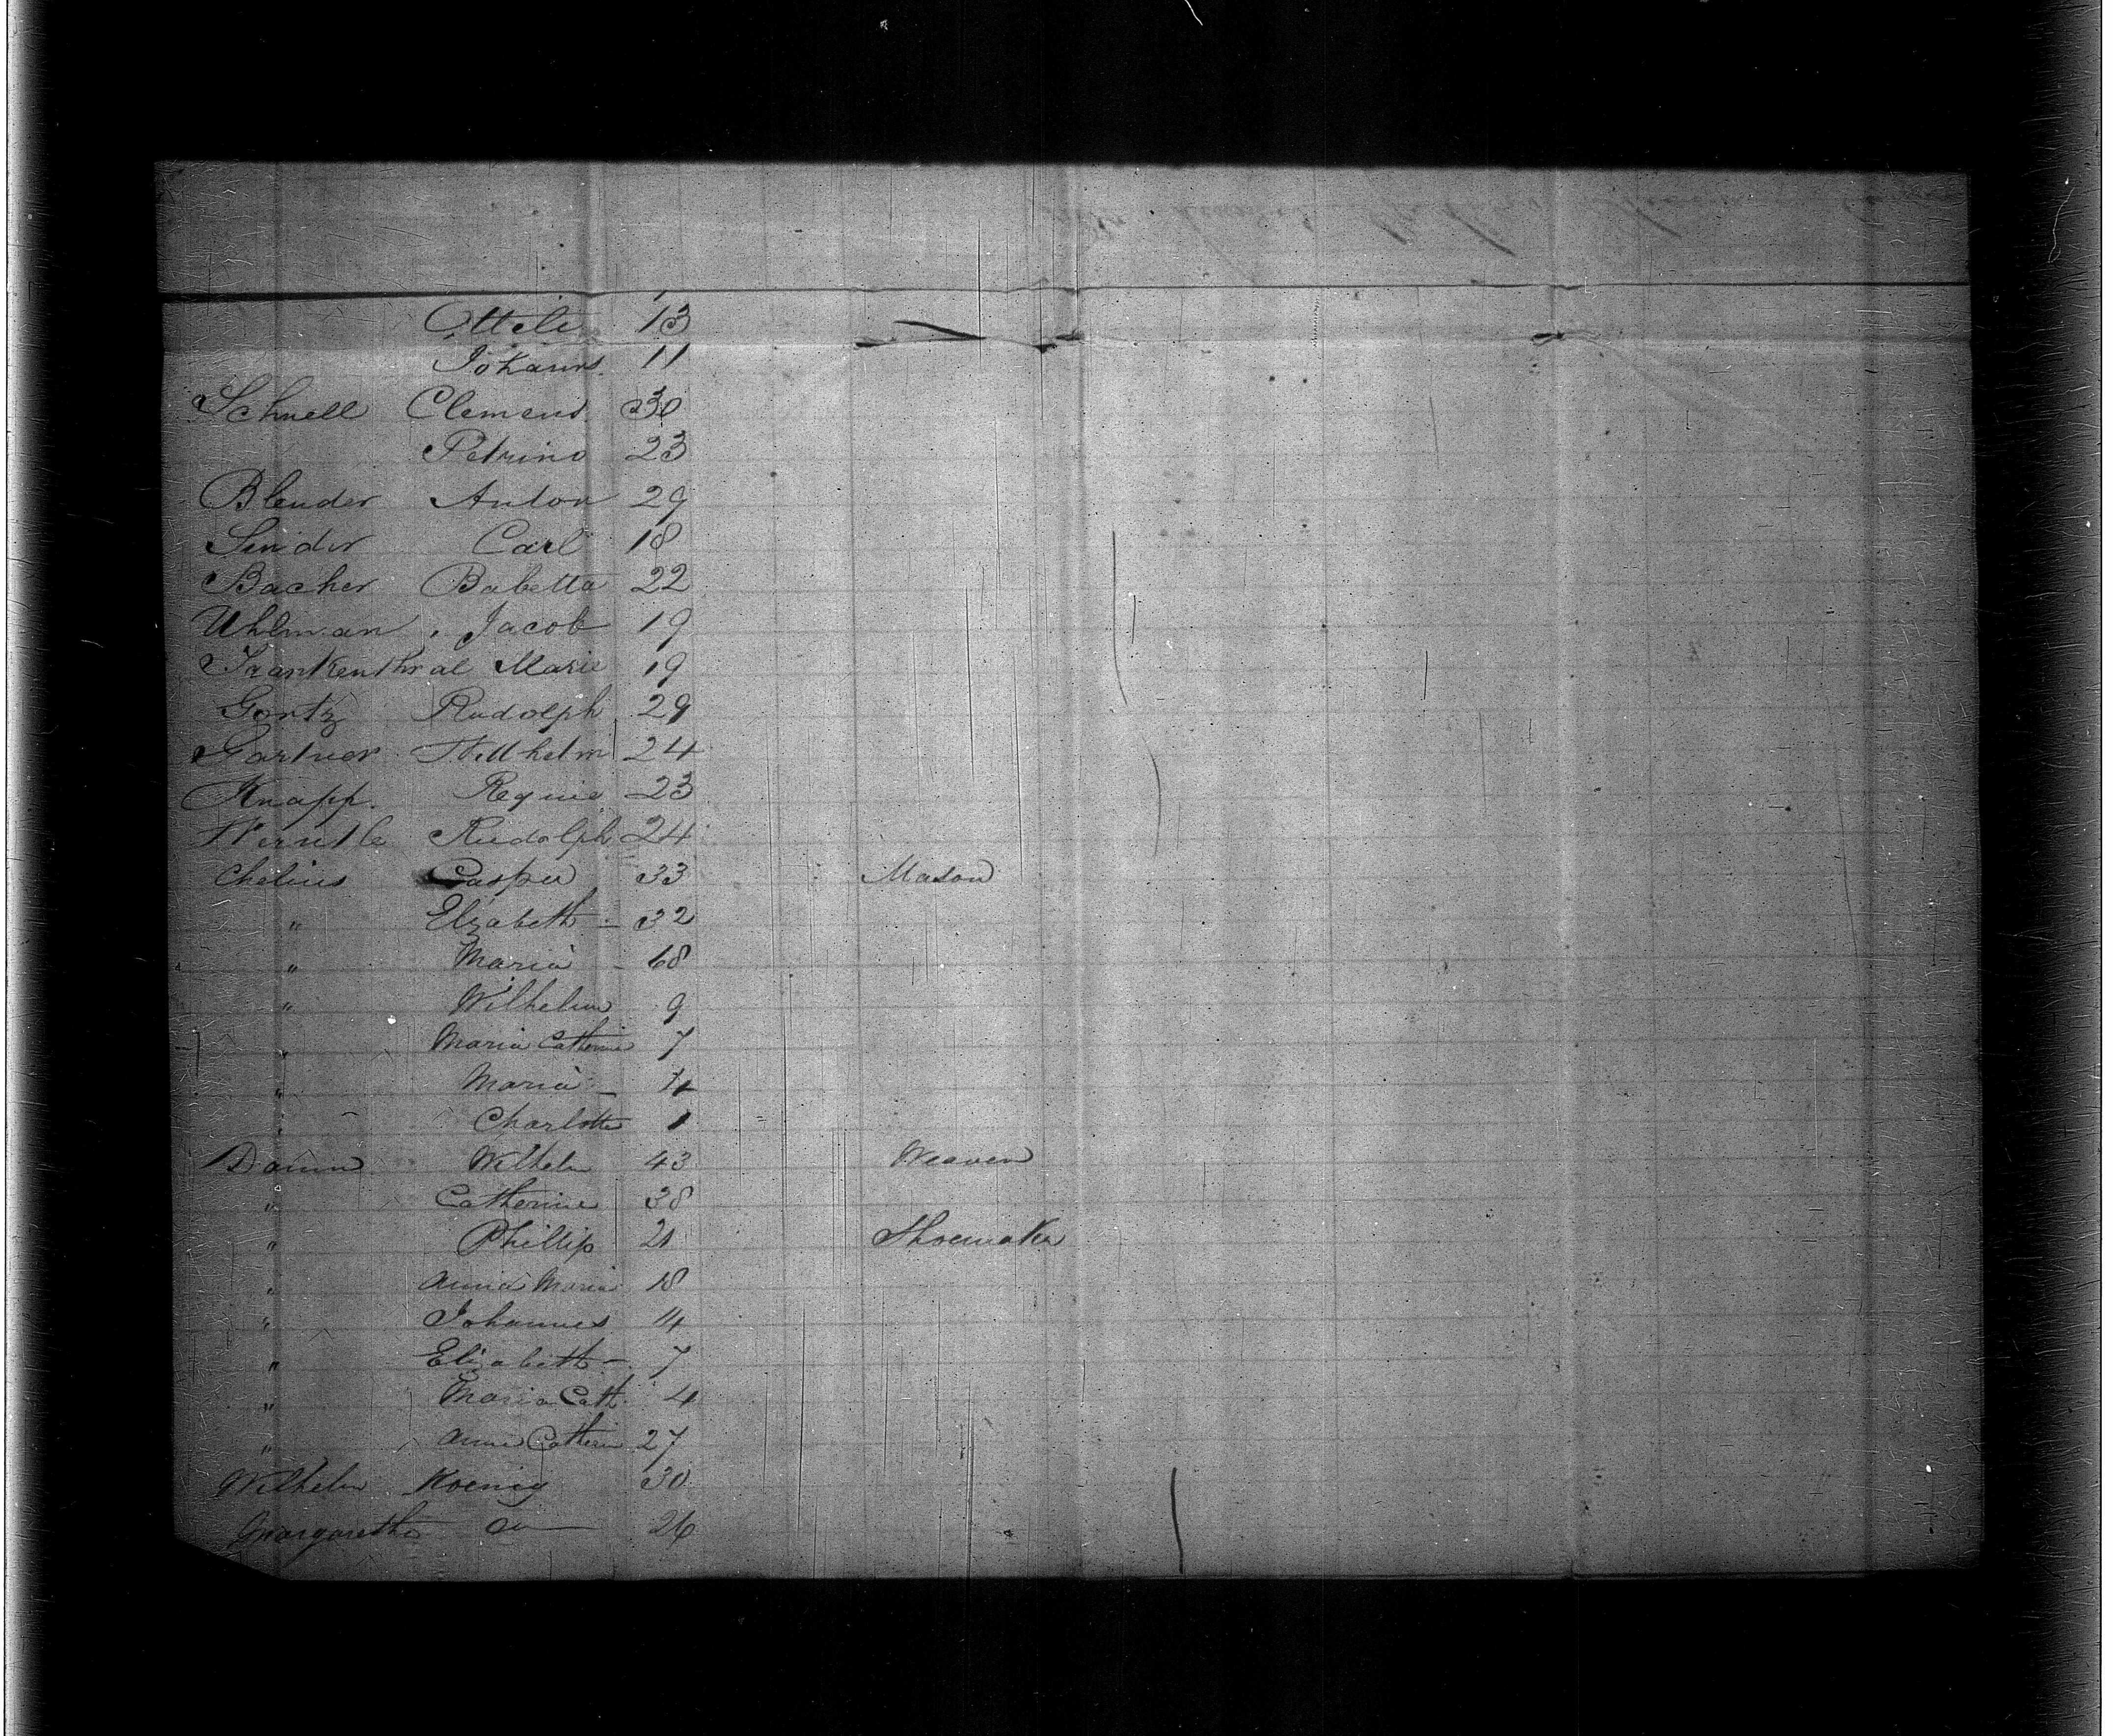 Ottele 13
Johanns. 11
Schnell Clemens 30
Petrino 23
Blender Anton 29
Sinder Carl 18
Bacher Babetta 22
Uhlman, Jacob 19
Frankenthral Marie 19
Gortz Rudolph 29
Gartner Willhelm 24
Knapp. Regine 23
Rudolph 24
Chelius Casper 33 Mason
" Elizabeth - 32
" Maria - 18
" Wilhelm 9
" Maria Catherine 7
" Maria - 4
" Charlotte 1
Damm Wilhelm 43 Weaver
" Catherine 38
" Phillip 21 Shoemaker
" Anna Maria 18
" Johannes 14
" Elizabeth - 7
" Maria Cath. 4
" Anna Catherin 27
Wilhelm Koenig 30
Margaretha do 26